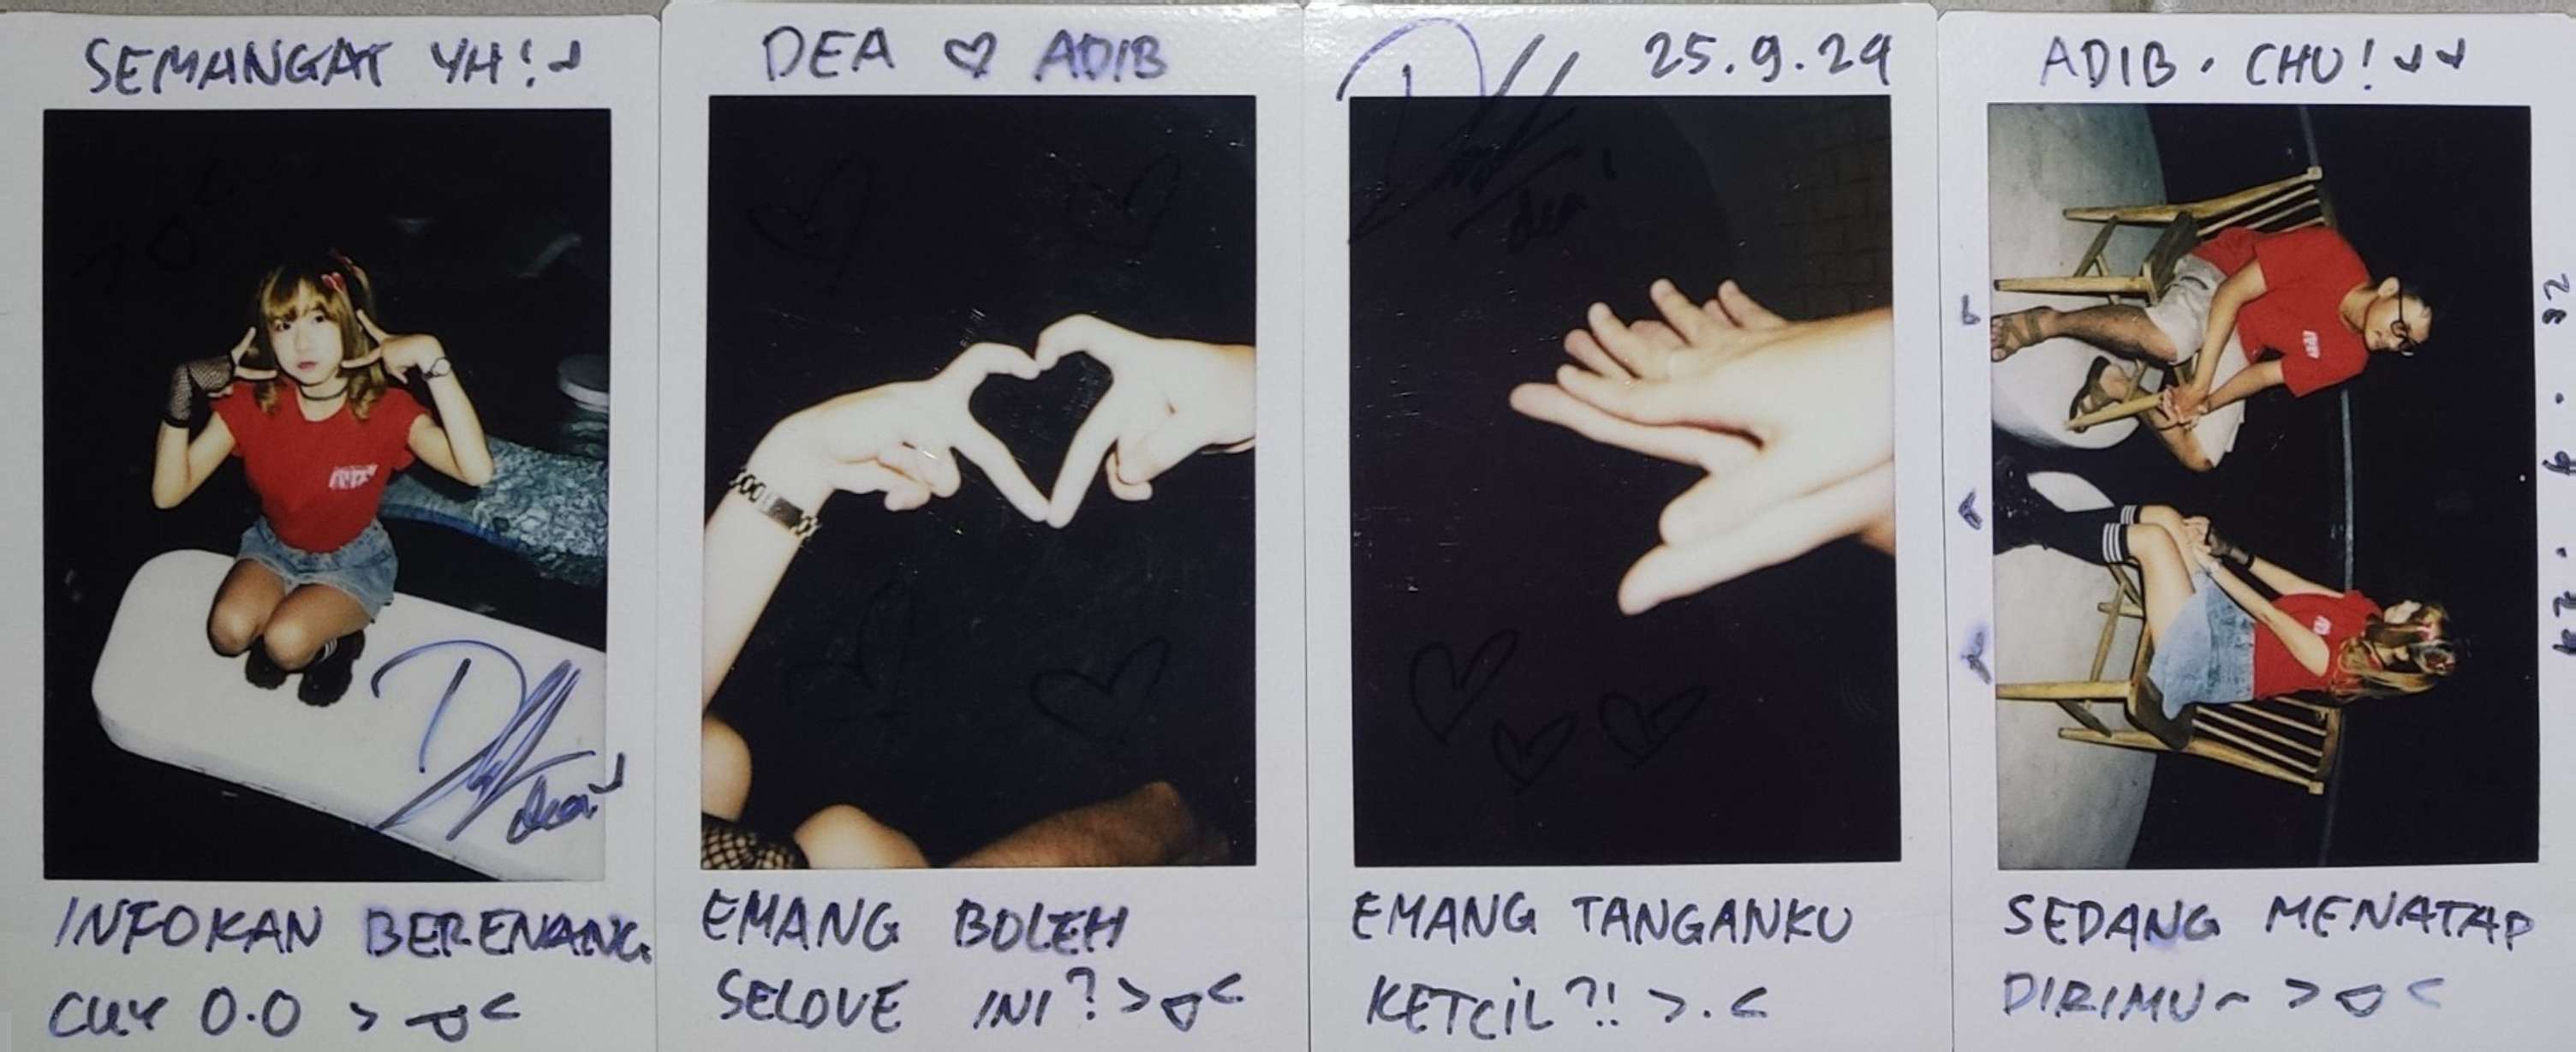 SEMANGAT YH!
Dea
INFOKAN BERENANG
CUY O.O > <
DEA ♡ ADIB
EMANG BOLEH
SELOVE INI? > <
25.9.24
dea!
EMANG TANGANKU
KETCIL?! >.<
ADIB. CHU!
SEDANG MENATAP
DIRIMU~ > <